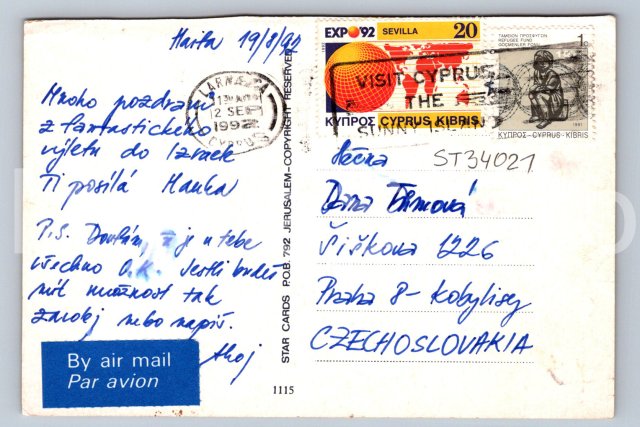 Haifa 19/8/92
Mnoho pozdravů
z fantastického
výletu do Izraele
Ti posílá Hanka
P.S. Doufám, že je u tebe
všechno O.K. Jestli budeš
mít možnost tak
zavolej nebo napiš.
Ahoj
By air mail
Par avion
STAR CARDS P.O.B. 792 JERUSALEM-COPYRIGHT RESERVED
1115
EXPO'92 SEVILLA 20
ΚΥΠΡΟΣ CYPRUS KIBRIS
1c
ΤΑΜΕΙΟΝ ΠΡΟΣΦΥΓΩΝ
REFUGEE FUND
GÖÇMENLER FONU
1991
ΚΥΠΡΟΣ-CYPRUS-KIBRIS
LARNACA
12 SE
1992
CYPRUS
VISIT CYPRUS
THE
SUNNY ISLAND
Slečna
ST34021
Dana
Šiškova 1226
Praha 8 - Kobylisy
CZECHOSLOVAKIA